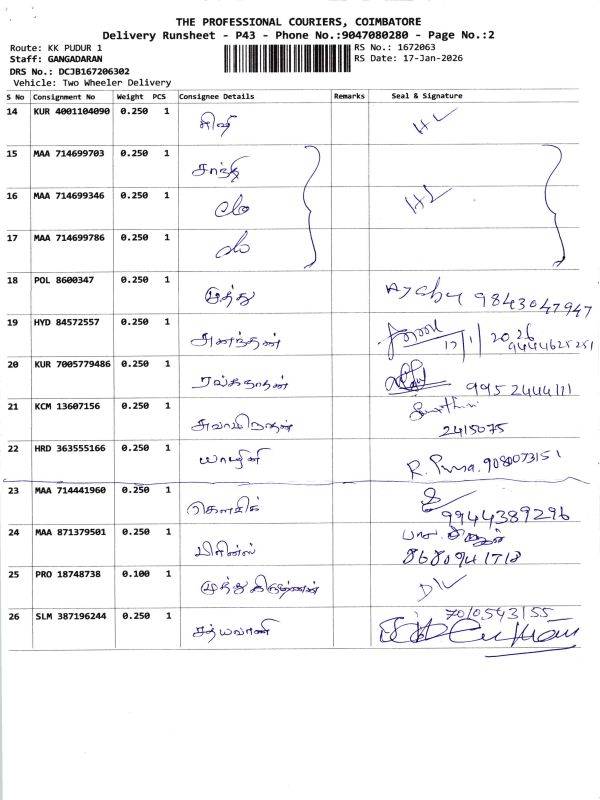 THE PROFESSIONAL COURIERS, COIMBATORE
Delivery Runsheet - P43 - Phone No.:9047080280 - Page No.:2
Route: KK PUDUR 1
RS No.: 1672063
Staff: GANGADARAN
RS Date: 17-Jan-2026
DRS No.: DCJB167206302
Vehicle: Two Wheeler Delivery
S No Consignment No Weight PCS Consignee Details Remarks Seal & Signature
14 KUR 4001104090 0.250 1
15 MAA 714699703 0.250 1 சாந்தி
16 MAA 714699346 0.250 1 do
17 MAA 714699786 0.250 1 do
18 POL 8600347 0.250 1 முத்து 9843047947
19 HYD 84572557 0.250 1 அனந்தன் 17/1/2026
9444625251
20 KUR 7005779486 0.250 1 ரங்கநாதன் 9952444171
21 KCM 13607156 0.250 1 சுவாமிநாதன்
2415075
22 HRD 363555166 0.250 1 யாழினி R. 9080073151
23 MAA 714441960 0.250 1 கௌசிக்
9944389296
24 MAA 871379501 0.250 1 பிரின்ஸ்
8680941713
25 PRO 18748738 0.100 1 முத்துகிருஷ்ணன்
26 SLM 387196244 0.250 1 சத்யவாணி 7010543155